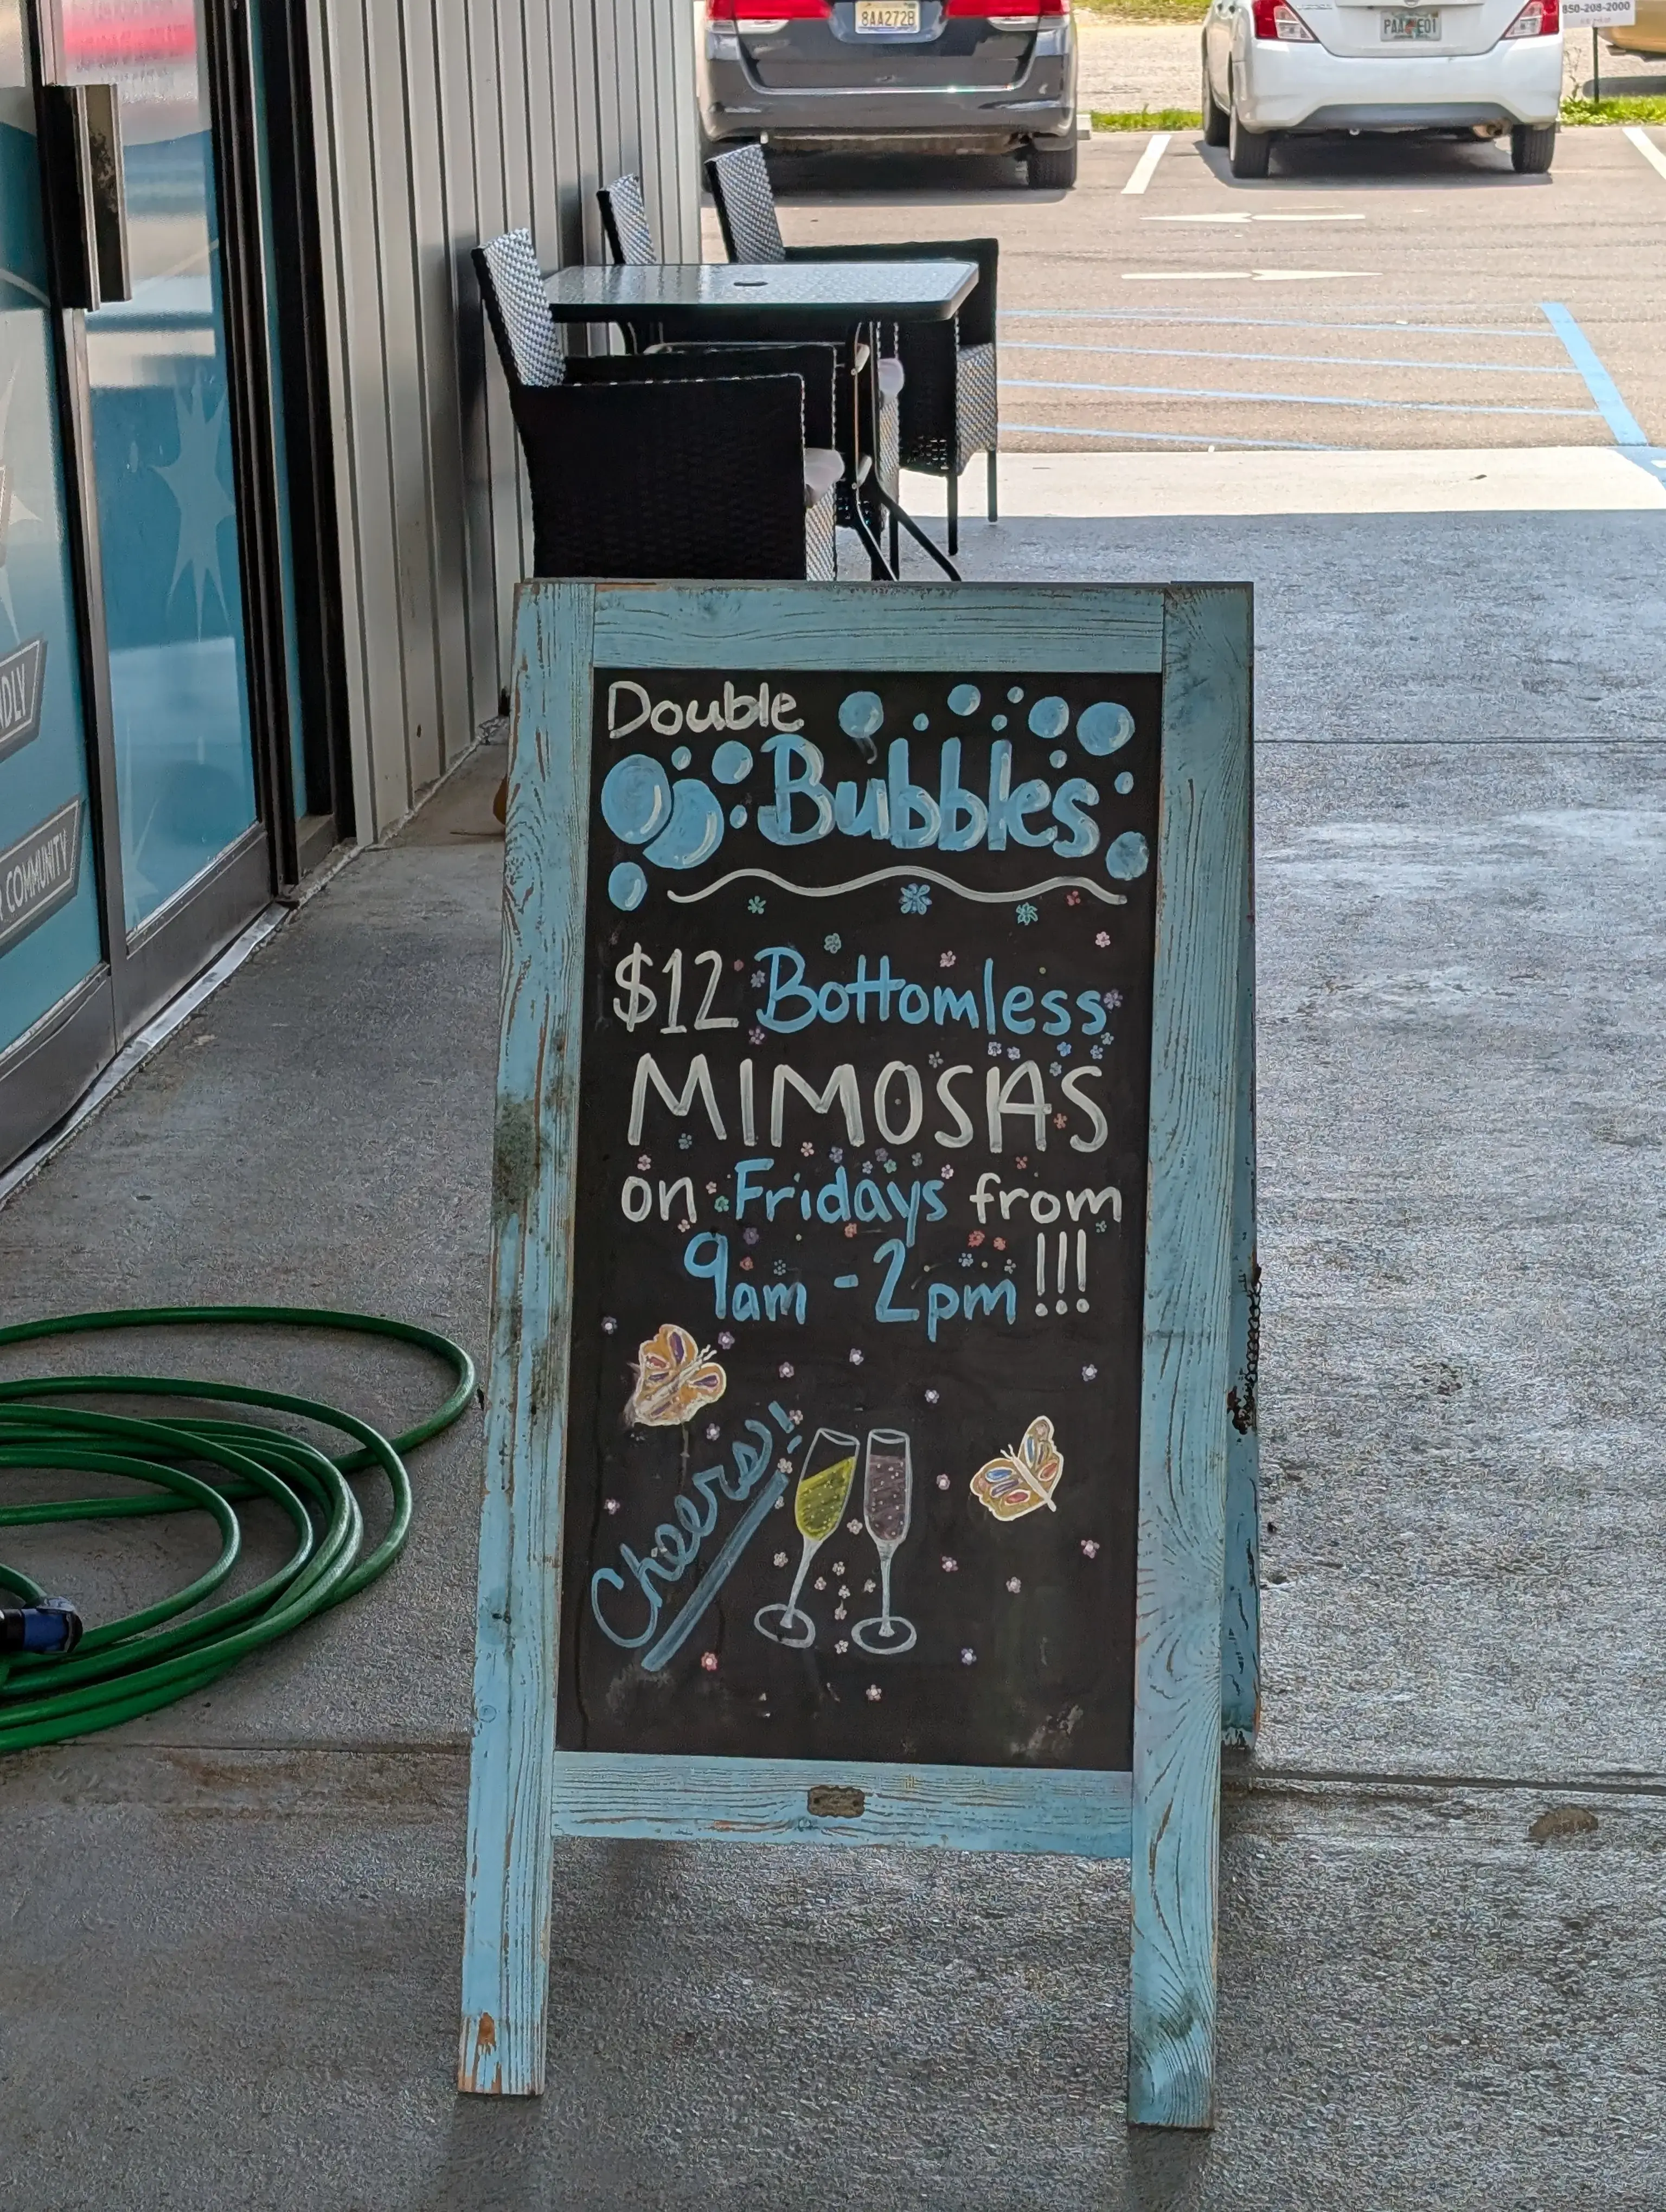 8AA272B
850-208-2000
Double
Bubbles
$12 Bottomless
MIMOSAS
on Fridays from
9am - 2pm !!!
Cheers!
COMMUNITY